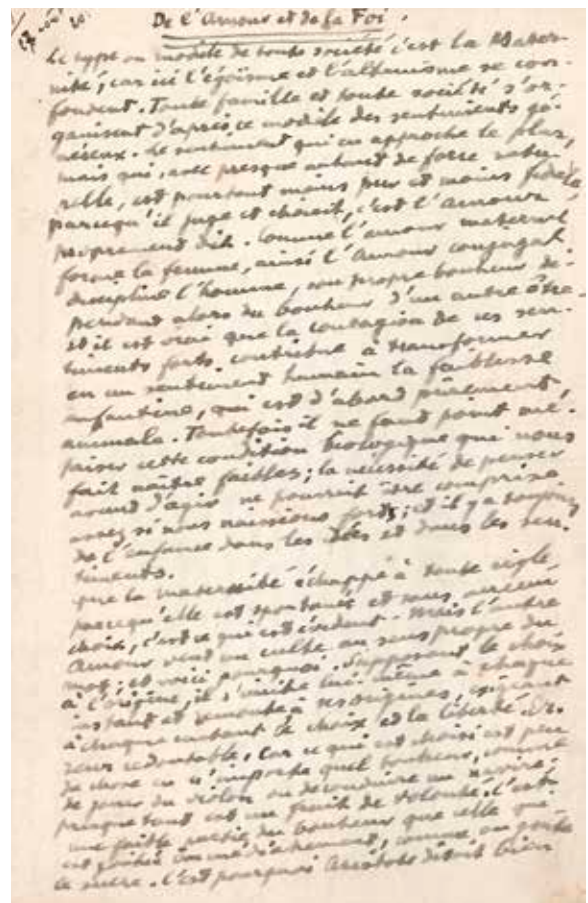 De l'Amour et de la Foi.
Le type ou modèle de toute société c'est la Mater-
nité ; car ici l'égoïsme et l'altruisme se con-
fondent. Toute famille et toute société s'or-
ganisent d'après ce modèle des sentiments gé-
néreux. Le sentiment qui en approche le plus,
mais qui, avec presque autant de force natu-
relle, est pourtant moins pur et moins fidèle,
parcequ'il juge et choisit, c'est l'amour
proprement dit. Comme l'amour maternel
forme la femme, ainsi l'Amour conjugal
discipline l'homme, son propre bonheur dé-
pendant alors du bonheur d'un autre être.
Et il est vrai que la contagion de ces sen-
timents forts contribue à transformer
en un sentiment humain la faiblesse
enfantine, qui est d'abord purement
animale. Toutefois il ne faut point mé-
priser cette condition biologique qui nous
fait naître faibles ; la nécessité de penser
avant d'agir ne pourrait être comprise
assez si nous naissions forts ; et il y a toujours
de l'enfance dans les idées et dans les sen-
timents.
Que la maternité échappe à toute règle
parcequ'elle est spontanée et sans aucun
choix, c'est ce qui est évident. Mais l'autre
Amour veut un culte au sens propre du
mot ; et voici pourquoi. Supposant le choix
à l'origine, il s'imite lui-même à chaque
instant et remonte à ses origines, exigeant
à chaque instant le choix et la liberté. Er-
reur redoutable, car ce qui est choisi est peu
de chose en n'importe quel bonheur, comme
de jouer du violon ou de conduire un navire ;
presque tout est un fruit de volonté. C'est
une faible partie du bonheur que celle qui
est goûtée immédiatement, comme on goûte
le sucre. C'est pourquoi Aristote disait bien